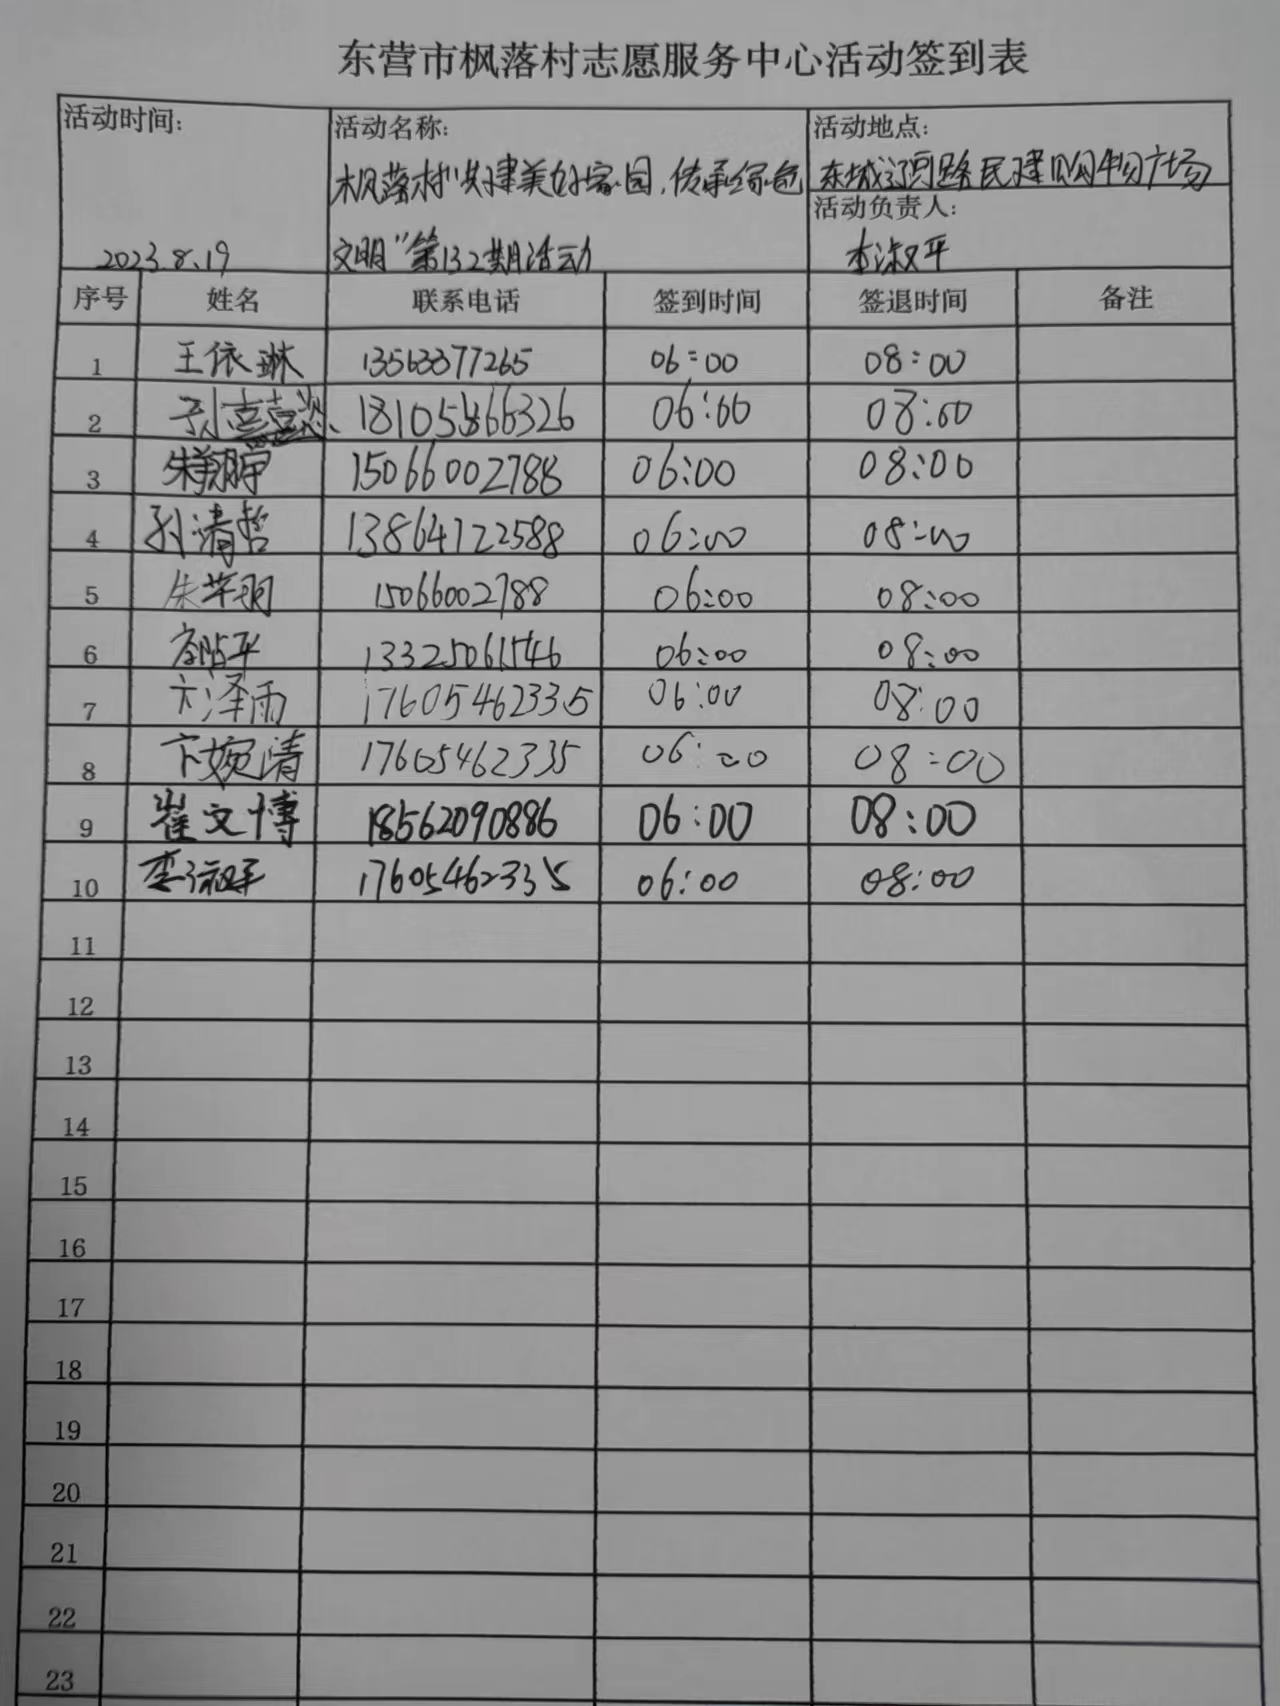 东营市枫落村志愿服务中心活动签到表
活动时间: 活动名称: 活动地点:
枫落村"共建美好家园,传承绿色 东城辽河路民建购物广场
活动负责人:
2023.8.19 文明"第132期活动 李淑平
序号 姓名 联系电话 签到时间 签退时间 备注
1 王依琳 13563377265 06:00 08:00
2 孙 06:00 08:00
3 朱翔宇 15066002788 06:00 08:00
4 孙清哲 13864122588 06:00 08:00
5 朱芊羽 15066002788 06:00 08:00
6 13325061546 06:00 08:00
7 卞泽雨 17605462335 06:00 08:00
8 卞婉清 17605462335 06:00 08:00
9 崔文博 18562090886 06:00 08:00
10 李淑平 17605462335 06:00 08:00
11
12
13
14
15
16
17
18
19
20
21
22
23